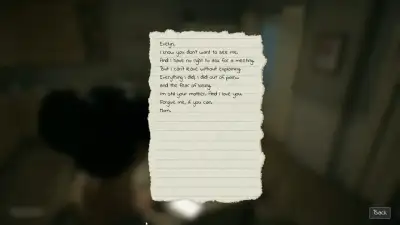 Evelyn,
I know you don't want to see me,
And I have no right to ask for a meeting.
But I can't leave without explaining.
Everything I did, I did out of pain,
and the fear of losing.
I'm still your mother. And I love you.
Forgive me, if you can.
Mom.
Back